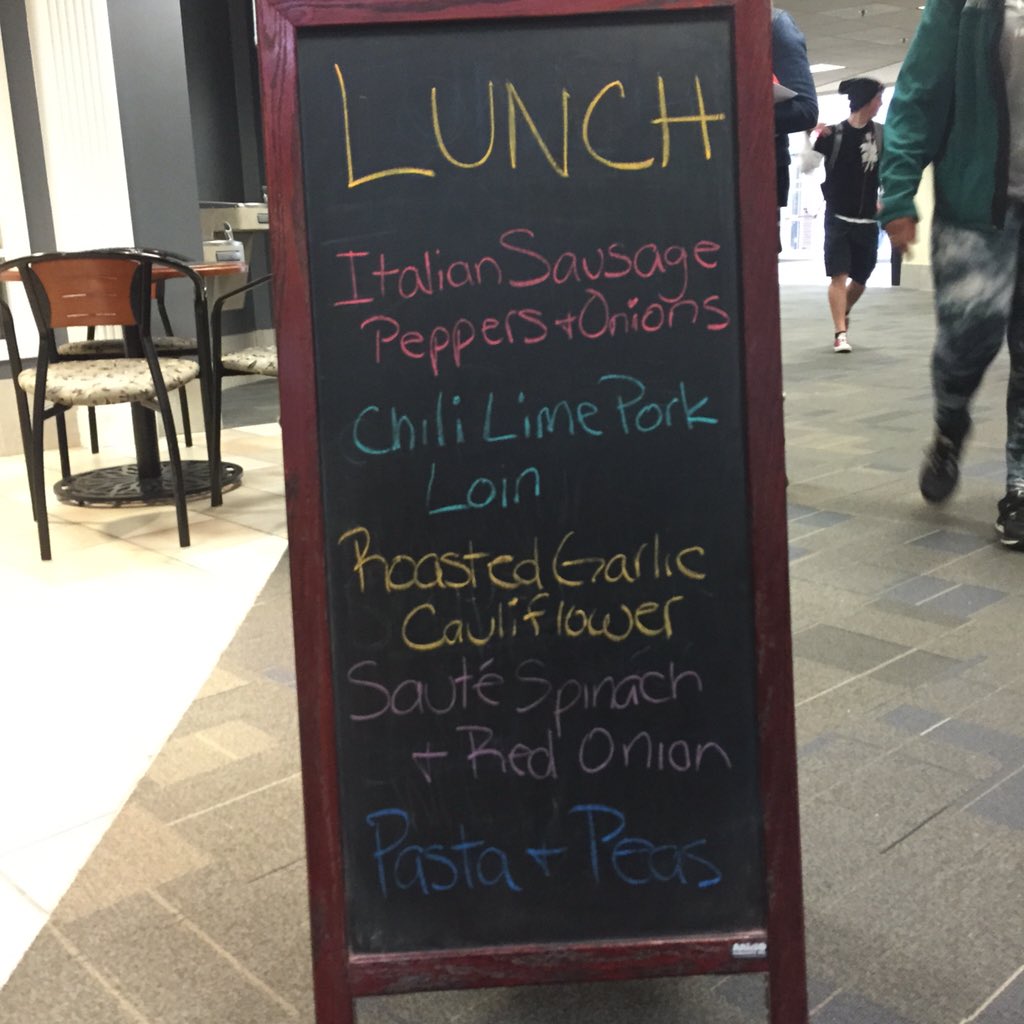 LUNCH
Italian Sausage
Peppers + Onions
Chili Lime Pork
Loin
Roasted Garlic
Cauliflower
Sauté Spinach
+ Red Onion
Pasta + Peas